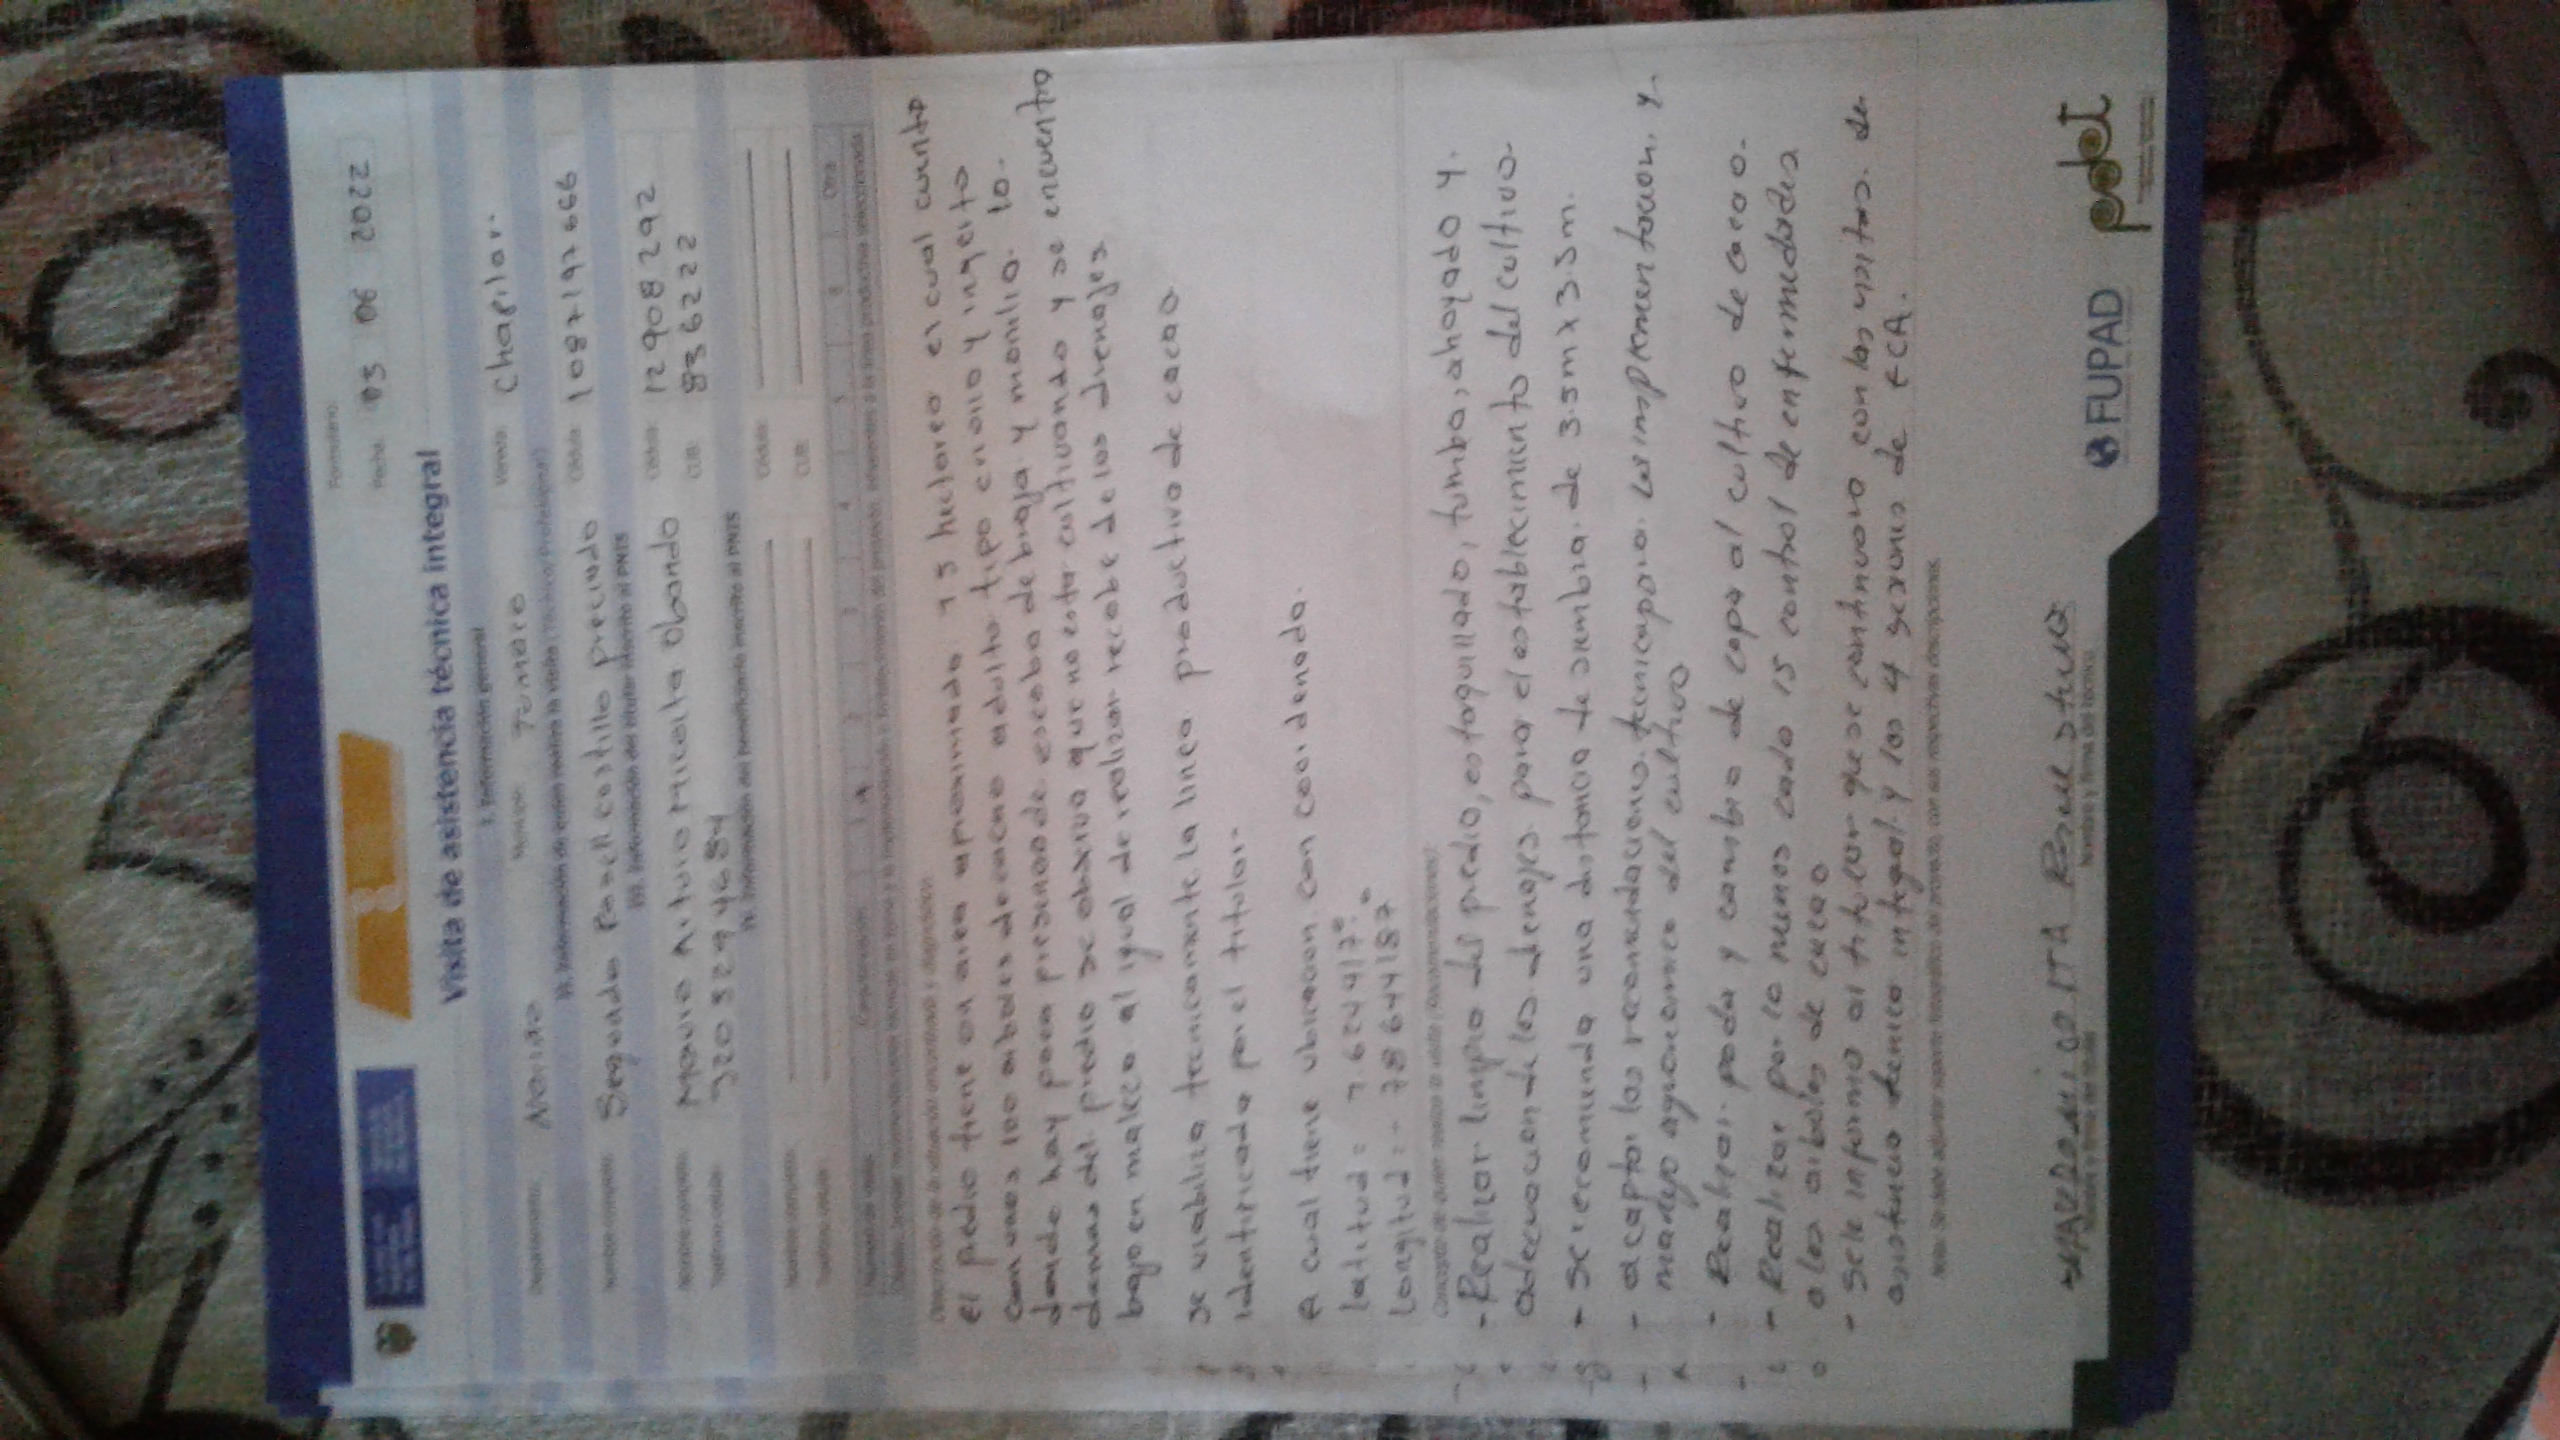 Formulario:
Fecha: 03 06 2022
Visita de asistencia técnica integral
I. Información general
Departamento: Nariño Municipio: Tumaco Vereda: Chapilar.
II. Información de quien realiza la visita (Técnico/Profesional)
Nombre completo: Segundo castillo preciado Cédula: 1087197666
III. Información del titular inscrito al PNIS
Nombre completo: Mauro Arturo Micolta Obando Cédula: 12908292
Teléfono celular: 3203294684 CUB: 836222
IV. Información del beneficiario inscrito al PNIS
Nombre completo: Cédula:
Teléfono celular: CUB:
Número de visita: 1 2 3 4 5 6 Otra
Descripción de la situación encontrada y diagnóstico:
el predio tiene un area aproximada 13 hectarea el cual cuanta
con unas 100 arboles de cacao adulto tipo criollo y ingerto
donde hay poca presencia de escoba de bruja y monilia. lo.
demas del predio se observa que no esta cultivando y se encuentra
bajo en maleza al igual de realizar recabe de los drenajes
se viabiliza tecnicamente la linea productivo de cacao
identificada por el titular.
a cual tiene ubicacion con coordenada.
latitud = 1.6244171°
longitud = - 78644187°
Concepto de quien realiza la visita (Recomendaciones):
- Realizar limpia del predio, estaquillado, tumba, ahoyado y.
adecuacion de los drenajes para el establecimiento del cultivo.
- se recomienda una distancia de siembra. de 3.5m x 3.5m.
- acaptar las recomendaciones tecnica para implementacion. y.
manejo agronomico del cultivo
- Realizar. poda y cambio de copa al cultivo de cacao.
- Realizar por lo menos cada 15 control de enfermedades
a los arboles de cacao
- se le informa al titular que se continuara con las visitas. de
asistencia tecnica integral y las 4 sesiones de ECA.
Nota: Se debe adjuntar soporte fotográfico del proyecto, con sus respectivas descripciones.
Nombre y firma del técnico
FUPAD
pdet